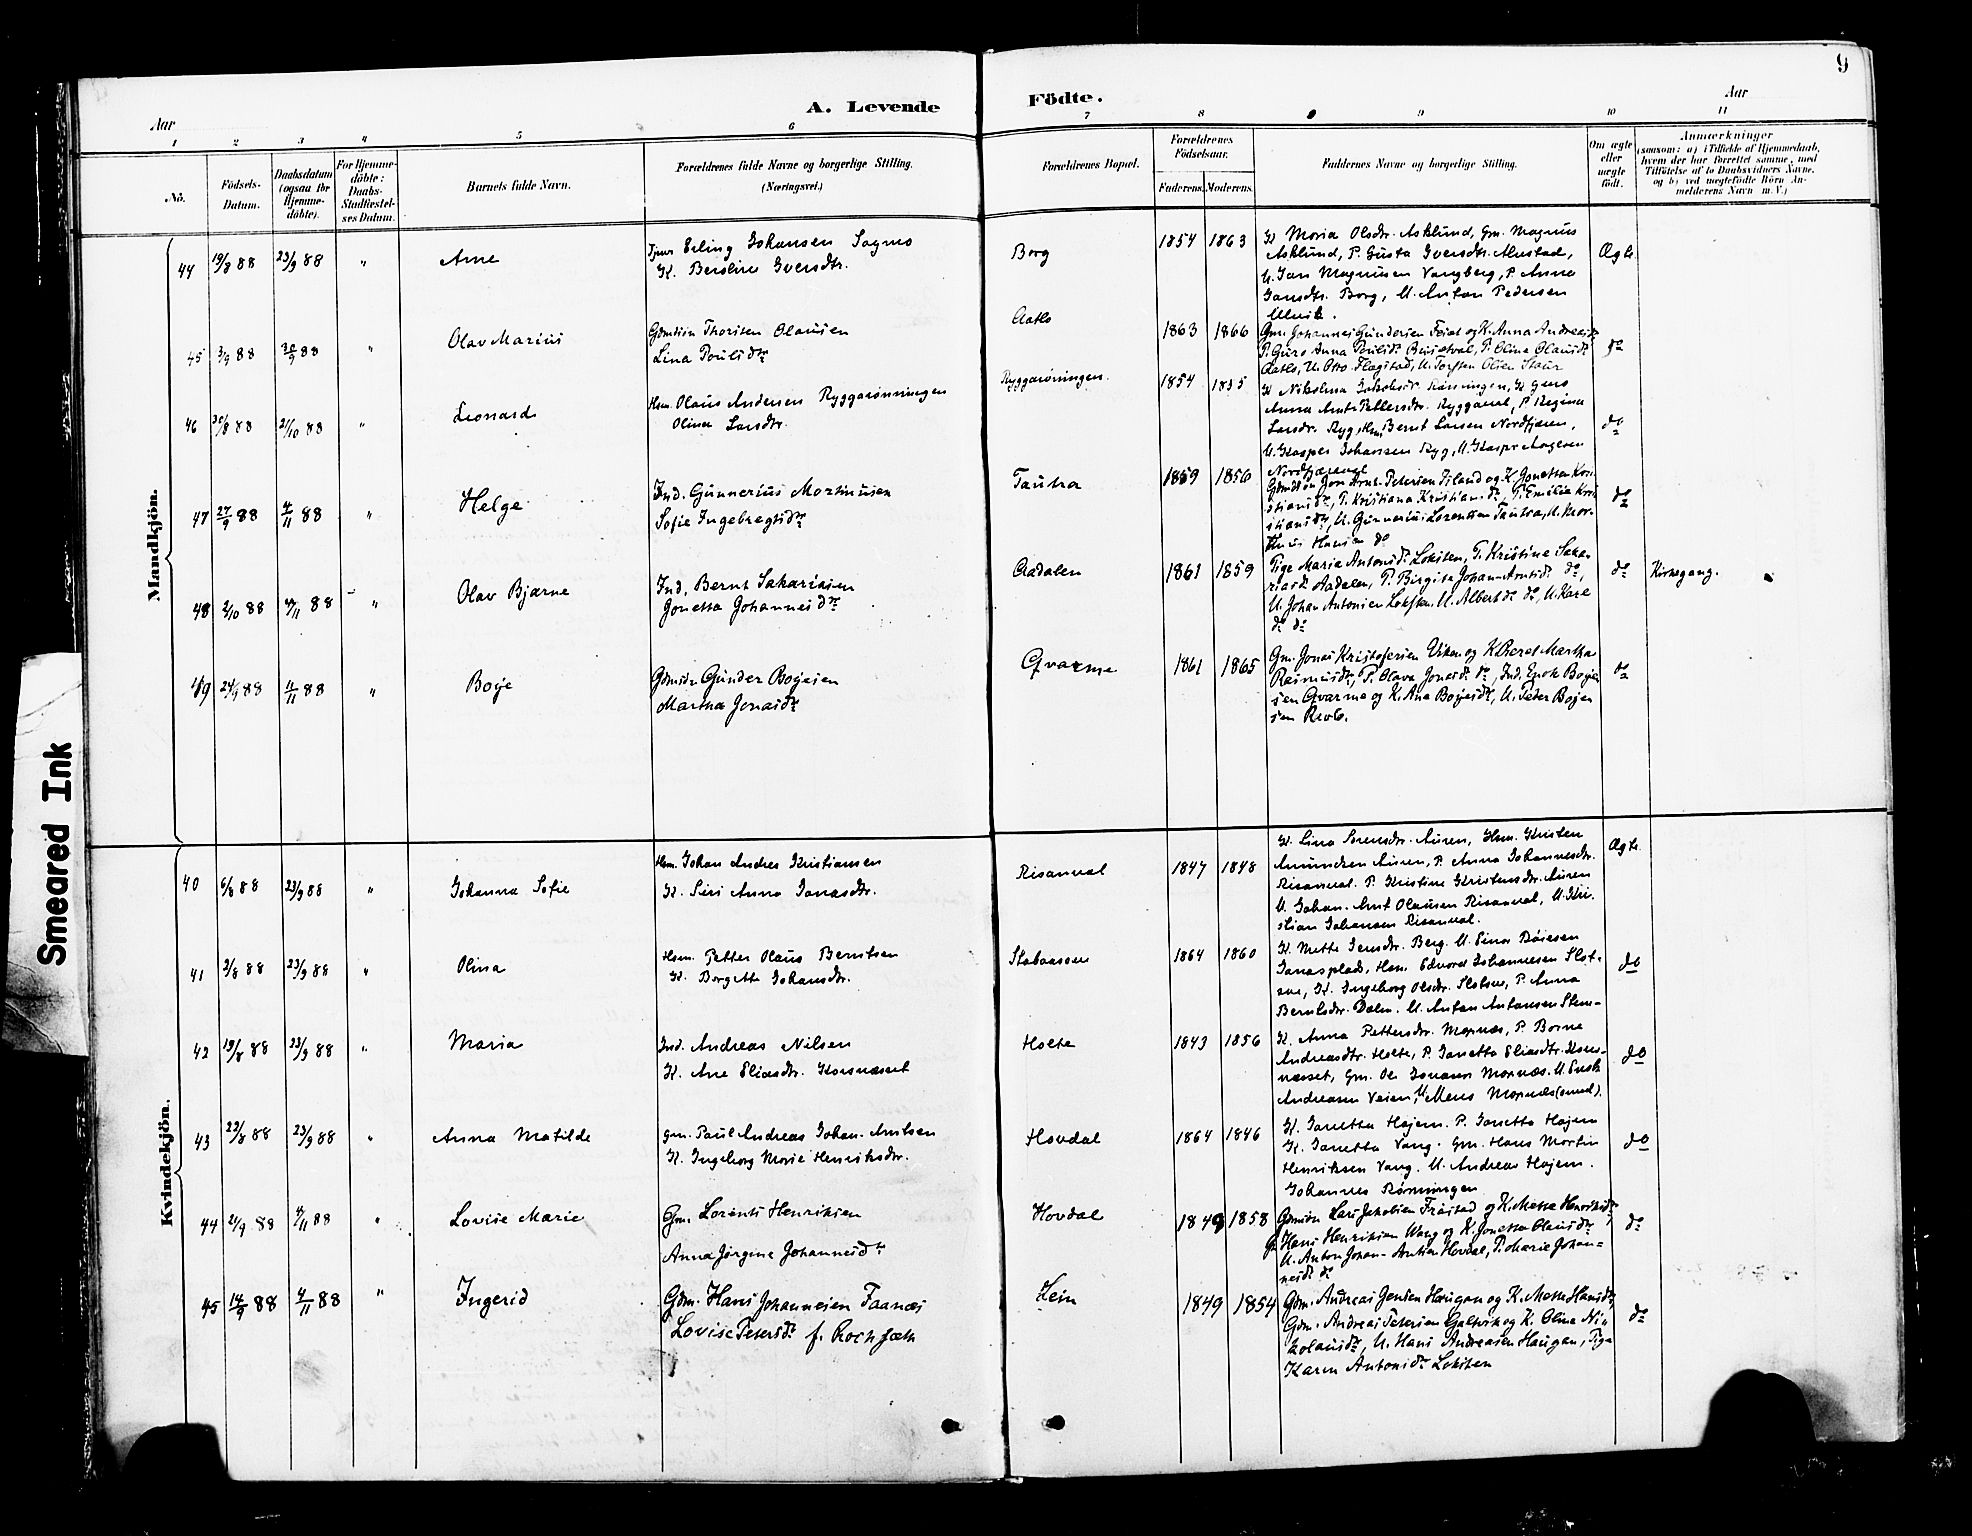 9
A. Levende Födte.
Aar
Aar
1 2 3 4 5 6 7 8 9 10 11
No.
Födsels-Datum.
Daabsdatum (ogsaa for Hjemme-döbte).
For Hjemme-döbte: Daabs-Stadfæstel-ses Datum.
Barnets fulde Navn.
Forældrenes fulde Navne og borgerlige Stilling.
(Næringsvei.)
Forældrenes Bopæl.
Forældrenes Födselsaar.
Faderens. Moderens.
Faddernes Navne og borgerlige Stilling.
Om ægte eller uægte födt.
Anmærkninger
(saasom: a) i Tilfælde af Hjemmedaab,
hvem der har forrettet samme, med
Tilföielse af to Daabsvidners Navne,
og b) ved uægtefödte Börn An-
melderens Navn m. V.)
Mandkjön.
44 19/8 88 23/9 88 " Arne
Erling Johansen Sagmo
K. Iversdtr.
Borg 1854 1863
K Maria Olsdtr. Asklund, Gm. Magnus
Asklund, P. Gusta Iversdtr. Alustad,
U. Jan Magnussen Vangberg, P. Anna
Jansdtr. Borg, U. Anton Pedersen
Ægte
45 3/9 88 30/9 88 " Olav Marius
Gdmdsön Thorsten Olausen
Lina Poulsdtr
Aatlo 1863 1866
Gm. Johannes Gundersen Foias og K. Anna Andreasd.
P. Guro Anna Poulsdr P. Olina Olausdr
Aatlo, U. Otto Flagstad, U. Torsten Olsen Staur
do
46 30/8 88 21/10 88 " Leonard
Hsm. Olaus Andersen Ryggarönningen
Olina Larsdtr.
Ryggarönningen. 1854 1835
K Nikolina Jakobsdr. Rönningen, K
Anna Arnt-Pettersdtr. Ryggaval, P Regina
Larsdr. Ryg, Hsm. Bernt Larsen Nordfjæren,
U. Kasper Johansen Ryg, U. Kasper
do
47 27/9 88 4/11 88 " Helge
Ind. Gunnerius Martinusen
Sofie Ingebregtsdtr
Tautra 1859 1856
Gdmdsön Jon Arnt-Petersen Island og K. Jonetta Kri-
stiansdr, P. Kristiana Kristiansdr, P. Emilie Kri
stiansdr, U. Gunnerius Lorentsen Tautra, U. Mar-
tinus Hansen do
do
48 2/10 88 4/11 88 " Olav Bjarne
Ind. Bernt Sakariasen
Jonetta Johannesdtr
Aadalen 1861 1859
Pige Maria Antonsdr Loksten, P. Kristine Saka-
riasdr Aadalen, P. Birgitte Johan Arntsdr do,
U. Johan Antonsen Loksten, U. Albert do do, U. Kare
do do
do Kirkegang.
49 24/9 88 4/11 88 " Boje
Gdmdsn Gunder Bojesen
Martha Jonasdtr
Qvarme 1861 1865
Gm. Jonas Kristofersen Viken og K Beret Martha
Rasmusdr, P. Olava Jonasdr do, Ind. Enok Boje-
sen Qvarme og K. Ane Bojesdr, U. Peter Boje-
sen Revlo.
do
Kvindekjön.
40 6/8 88 23/9 88 " Johanna Sofie
Hsm. Johan Andreas Kristiansen
K. Siri Anna Jonasdtr.
Risanval 1847 1848
K. Lina Sörensdtr. Auren, Hsm. Kristen
Amundsen Auren, P. Anna Johannesdtr.
Risanval. P. Kristine Kristensdtr. Auren
U. Johan. Arnt Olausen Risanval, U. Kri-
stian Johansen Risanval.
Ægte
41 3/8 88 23/9 88 " Olina
Hsm. Petter Olaus Berntsen
K. Borgitte Johansdtr.
1864 1860
K. Mette Jensdtr. Berg. U. Einar
Jonasplads, Hsm. Edvard Johannesen
K. Ingeborg Olsdtr. P. Anna
Berntsdtr. Dalen. U. Anton Antonsen Sten-
do
42 19/8 88 23/9 88 " Maria
Ind. Andreas Nilsen
K. Ane Eliasdtr. Korsnæsset
Holte 1843 1856
K. Anna Pettersdtr. Mornæs, P. Borne
Andreasdtr. Holte, P. Janetta Eliasdtr. Kors-
næsset, Gm. Ole Jonasen Mornæs. U. Enok
Andreasen Veien, U Mens Mornæs
do
43 22/8 88 23/9 88 " Anna Matilde
Gm. Paul Andreas Johan-Arntsen
K. Ingeborg Marie Henriksdtr.
Hovdal 1864 1846
K. Janetta Hojem. P. Janetta Hojem
K. Janetta Vang. Gm. Hans Martin
Henriksen Vang. U. Andreas Hojem.
Johannes Rönningen
do
44 21/9 88 4/11 88 " Lovise Marie
Gm. Lorents Henriksen
Anna Jörgine Johannesdtr
Hovdal 1849 1858
Gdmdsön Lars Jakobsen Fröstad og K. Mette Henriksdr,
G. Hans Henriksen Wang og K. Jonetta Olausdr,
U. Anton Johan-Arntsen Hovdal, P. Marie Johan-
nesdr do
do
45 14/9 88 4/11 88 " Ingerid
Gdm. Hans Johannesen Faanæs
Lovise Petersdr f. Rockfæth
Lein 1849 1854
Gdm. Andreas Jensen Haugan og K. Mette Hansdr,
Gdm. Andreas Petersen Galtvik og K. Olina Ni-
kolausdr, U. Hans Andreasen Haugan, Pige
Karen Antonsdr Loksten
do
Smeared Ink